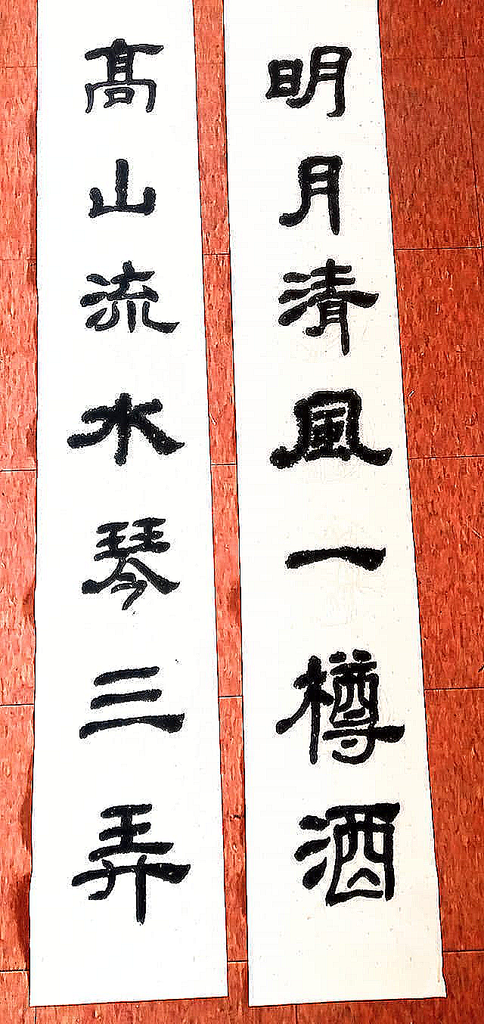 明月清風一樽酒
髙山流水琴三弄